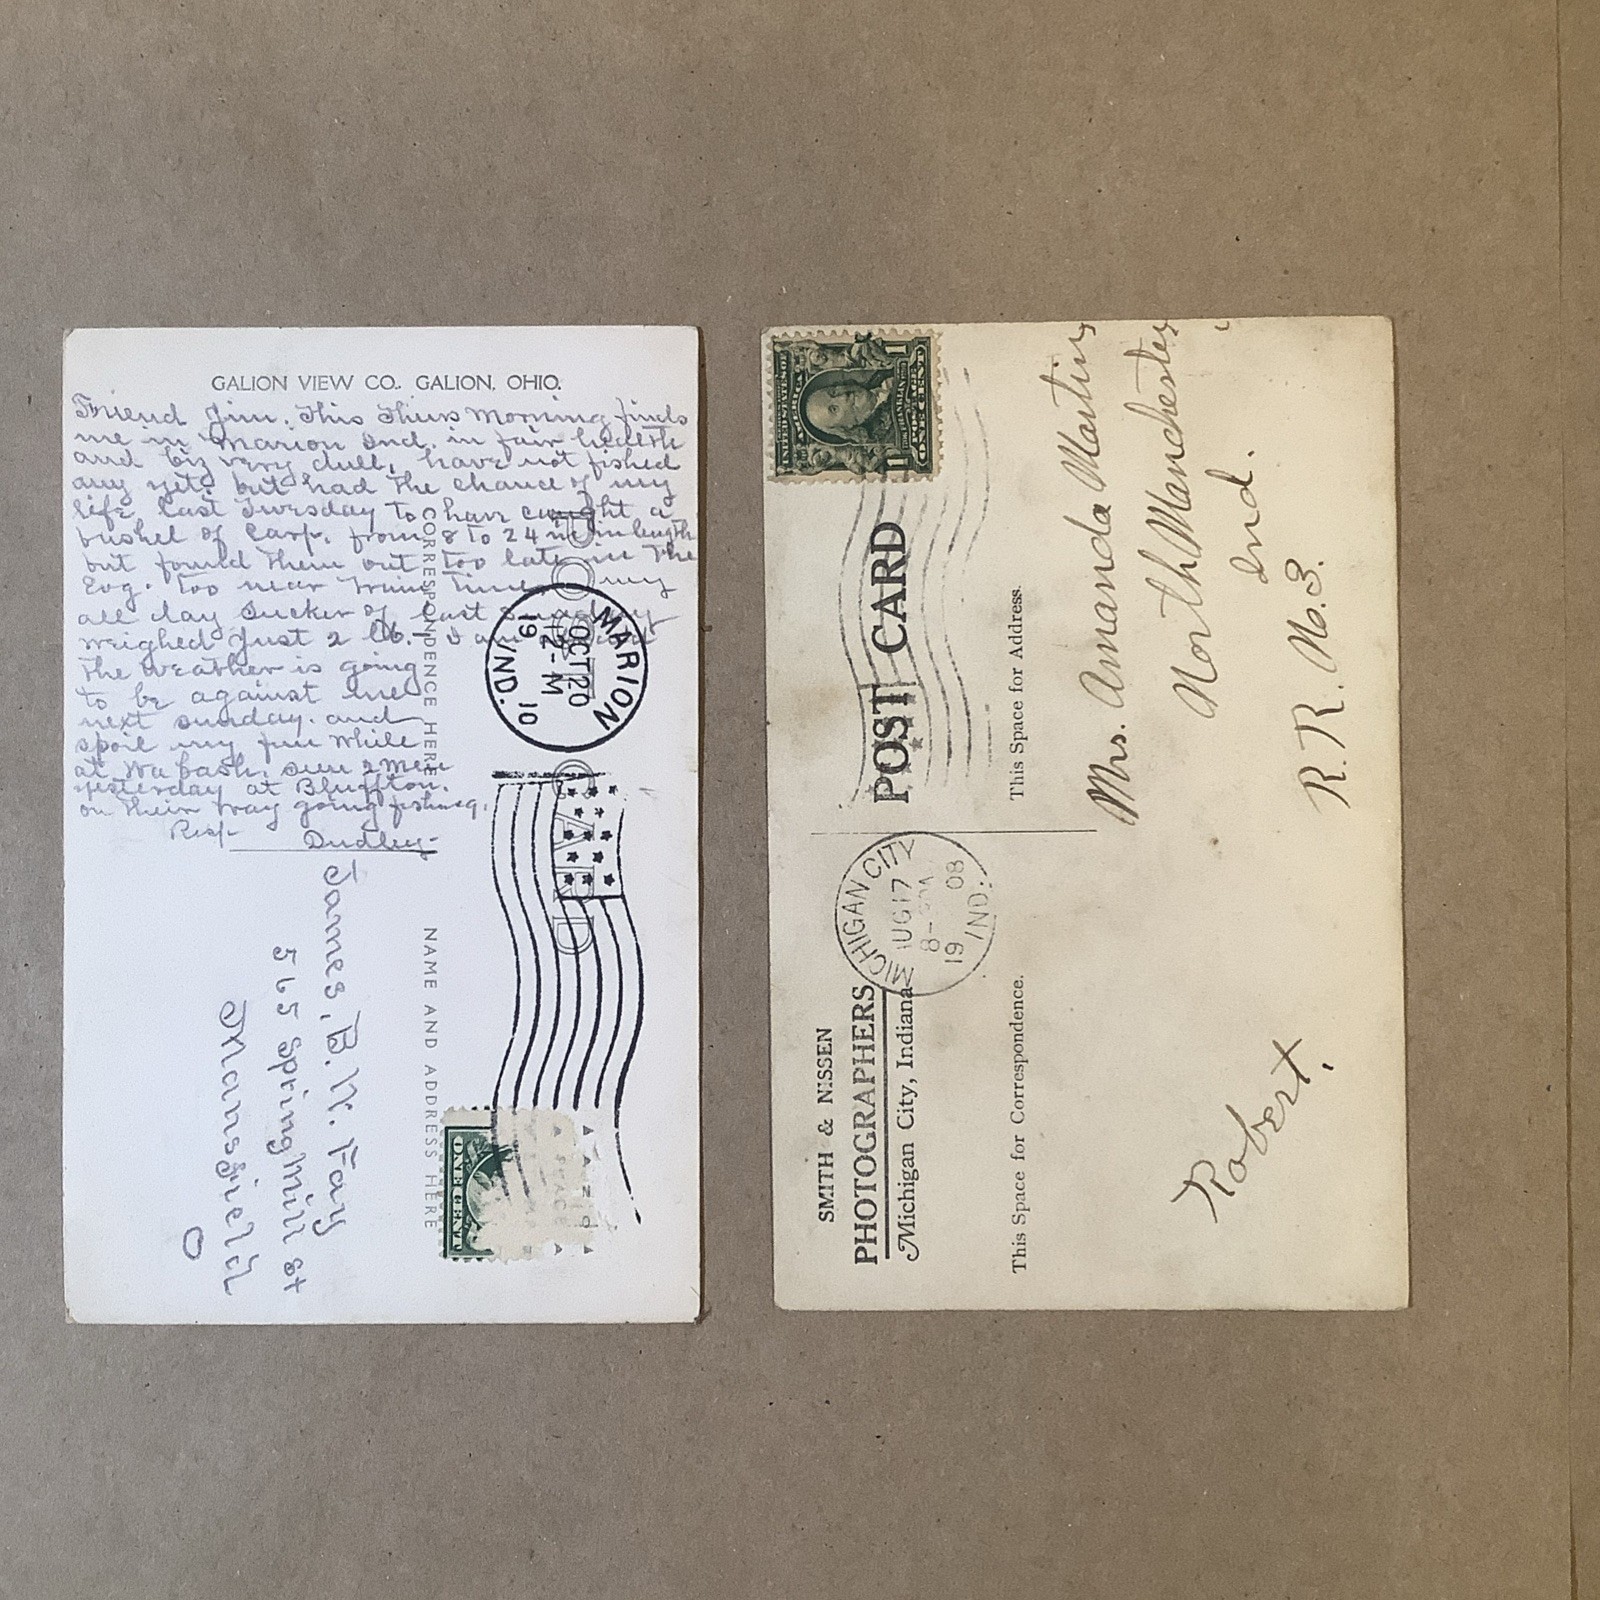 GALION VIEW CO. GALION, OHIO.
Friend Jim. This Thurs Morning finds
me in Marion Ind. in fair health
and biz very dull, have not fished
any yet, but had the chance of my
life last Tuesday to have caught a
bushel of Carp. from 8 to 24 in in length
but found them out too late in the
Evg. too near train time my
all day sucker of last Sunday
weighed Just 2 lb. - I am
the weather is going
to be against me
next sunday. and
spoil my fun while
at Wabash. seen 2 men
yesterday at Bluffton.
on their way going fishing.
Resp- Dudley-
CORRESPONDENCE HERE
NAME AND ADDRESS HERE
POST CARD
MARION
OCT 20
12-M
19 10
IND.
ONE CENT
James. B. W. Fay
565 Spring Mill St
Mansfield
O
SMITH & NISSEN
PHOTOGRAPHERS
Michigan City, Indiana
POST CARD
This Space for Correspondence.
This Space for Address.
MICHIGAN CITY
UG 17
8-
19 08
IND.
UNITED STATES OF
AMERICA
FRANKLIN
POSTAGE
ONE CENT
1 1
Mrs. Amanda Martin
North Manchester
Ind.
R. R. No. 3.
Robert.